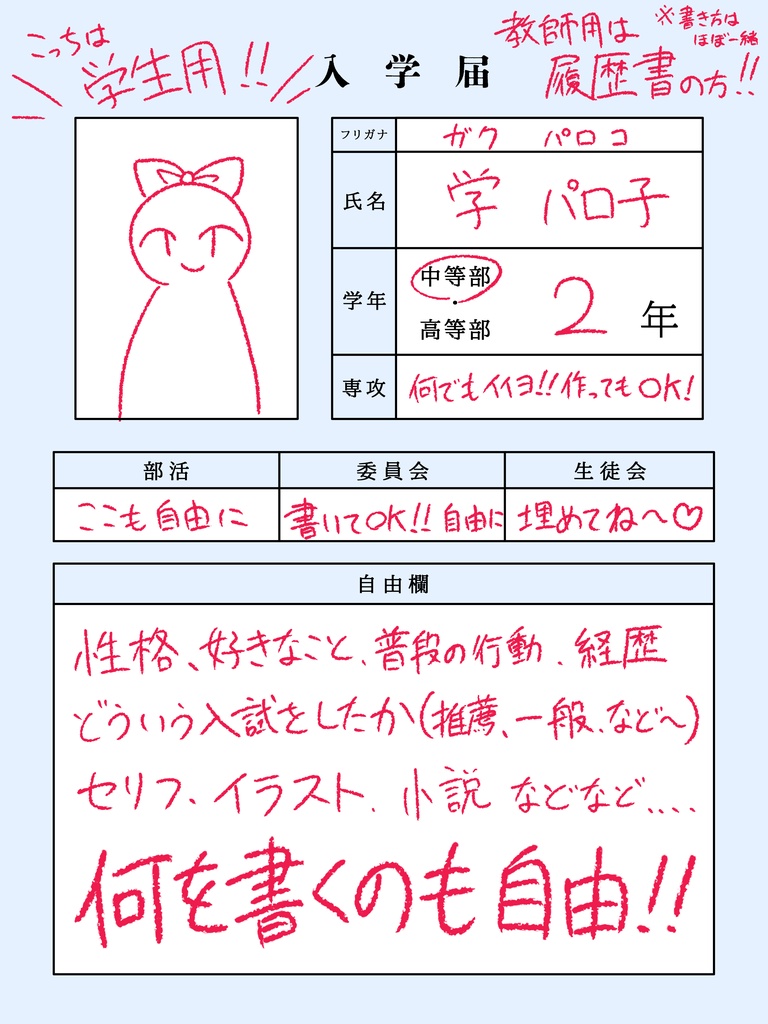 こっちは
学生用!!
入学届
教師用は
※書き方は
ほぼ一緒
履歴書の方!!
フリガナ ガク パロコ
氏名 学 パロ子
学年 中等部・高等部 2年
専攻 何でもイイヨ!!作ってもOK!
部活 委員会 生徒会
ここも自由に 書いてOK!!自由に 埋めてね〜♡
自由欄
性格、好きなこと、普段の行動、経歴
どういう入試をしたか(推薦、一般、など〜)
セリフ、イラスト、小説 などなど....
何を書くのも自由!!